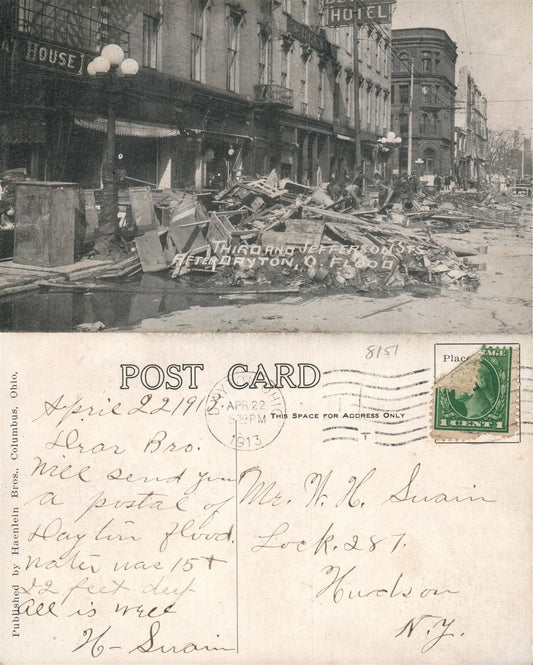 HOTEL
HOUSE
THIRD AND JEFFERSON STS.
AFTER DAYTON, O. FLOOD
Published by Haenlein Bros., Columbus, Ohio.
8151
POST CARD
THIS SPACE FOR ADDRESS ONLY
APR 22
PM
1913
Place
AGE
1 CENT 1
April 22 1913
Dear Bro.
Will send you
a postal of
Dayton flood.
Water was 15 +
22 feet deep
All is well
H- Swain
Mr. W. H. Swain
Lock. 287.
Hudson
N.Y.